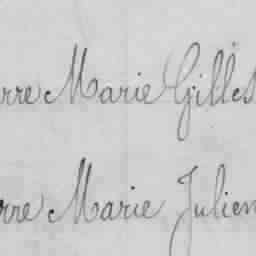 rre Marie Gilles
rre Marie Julien